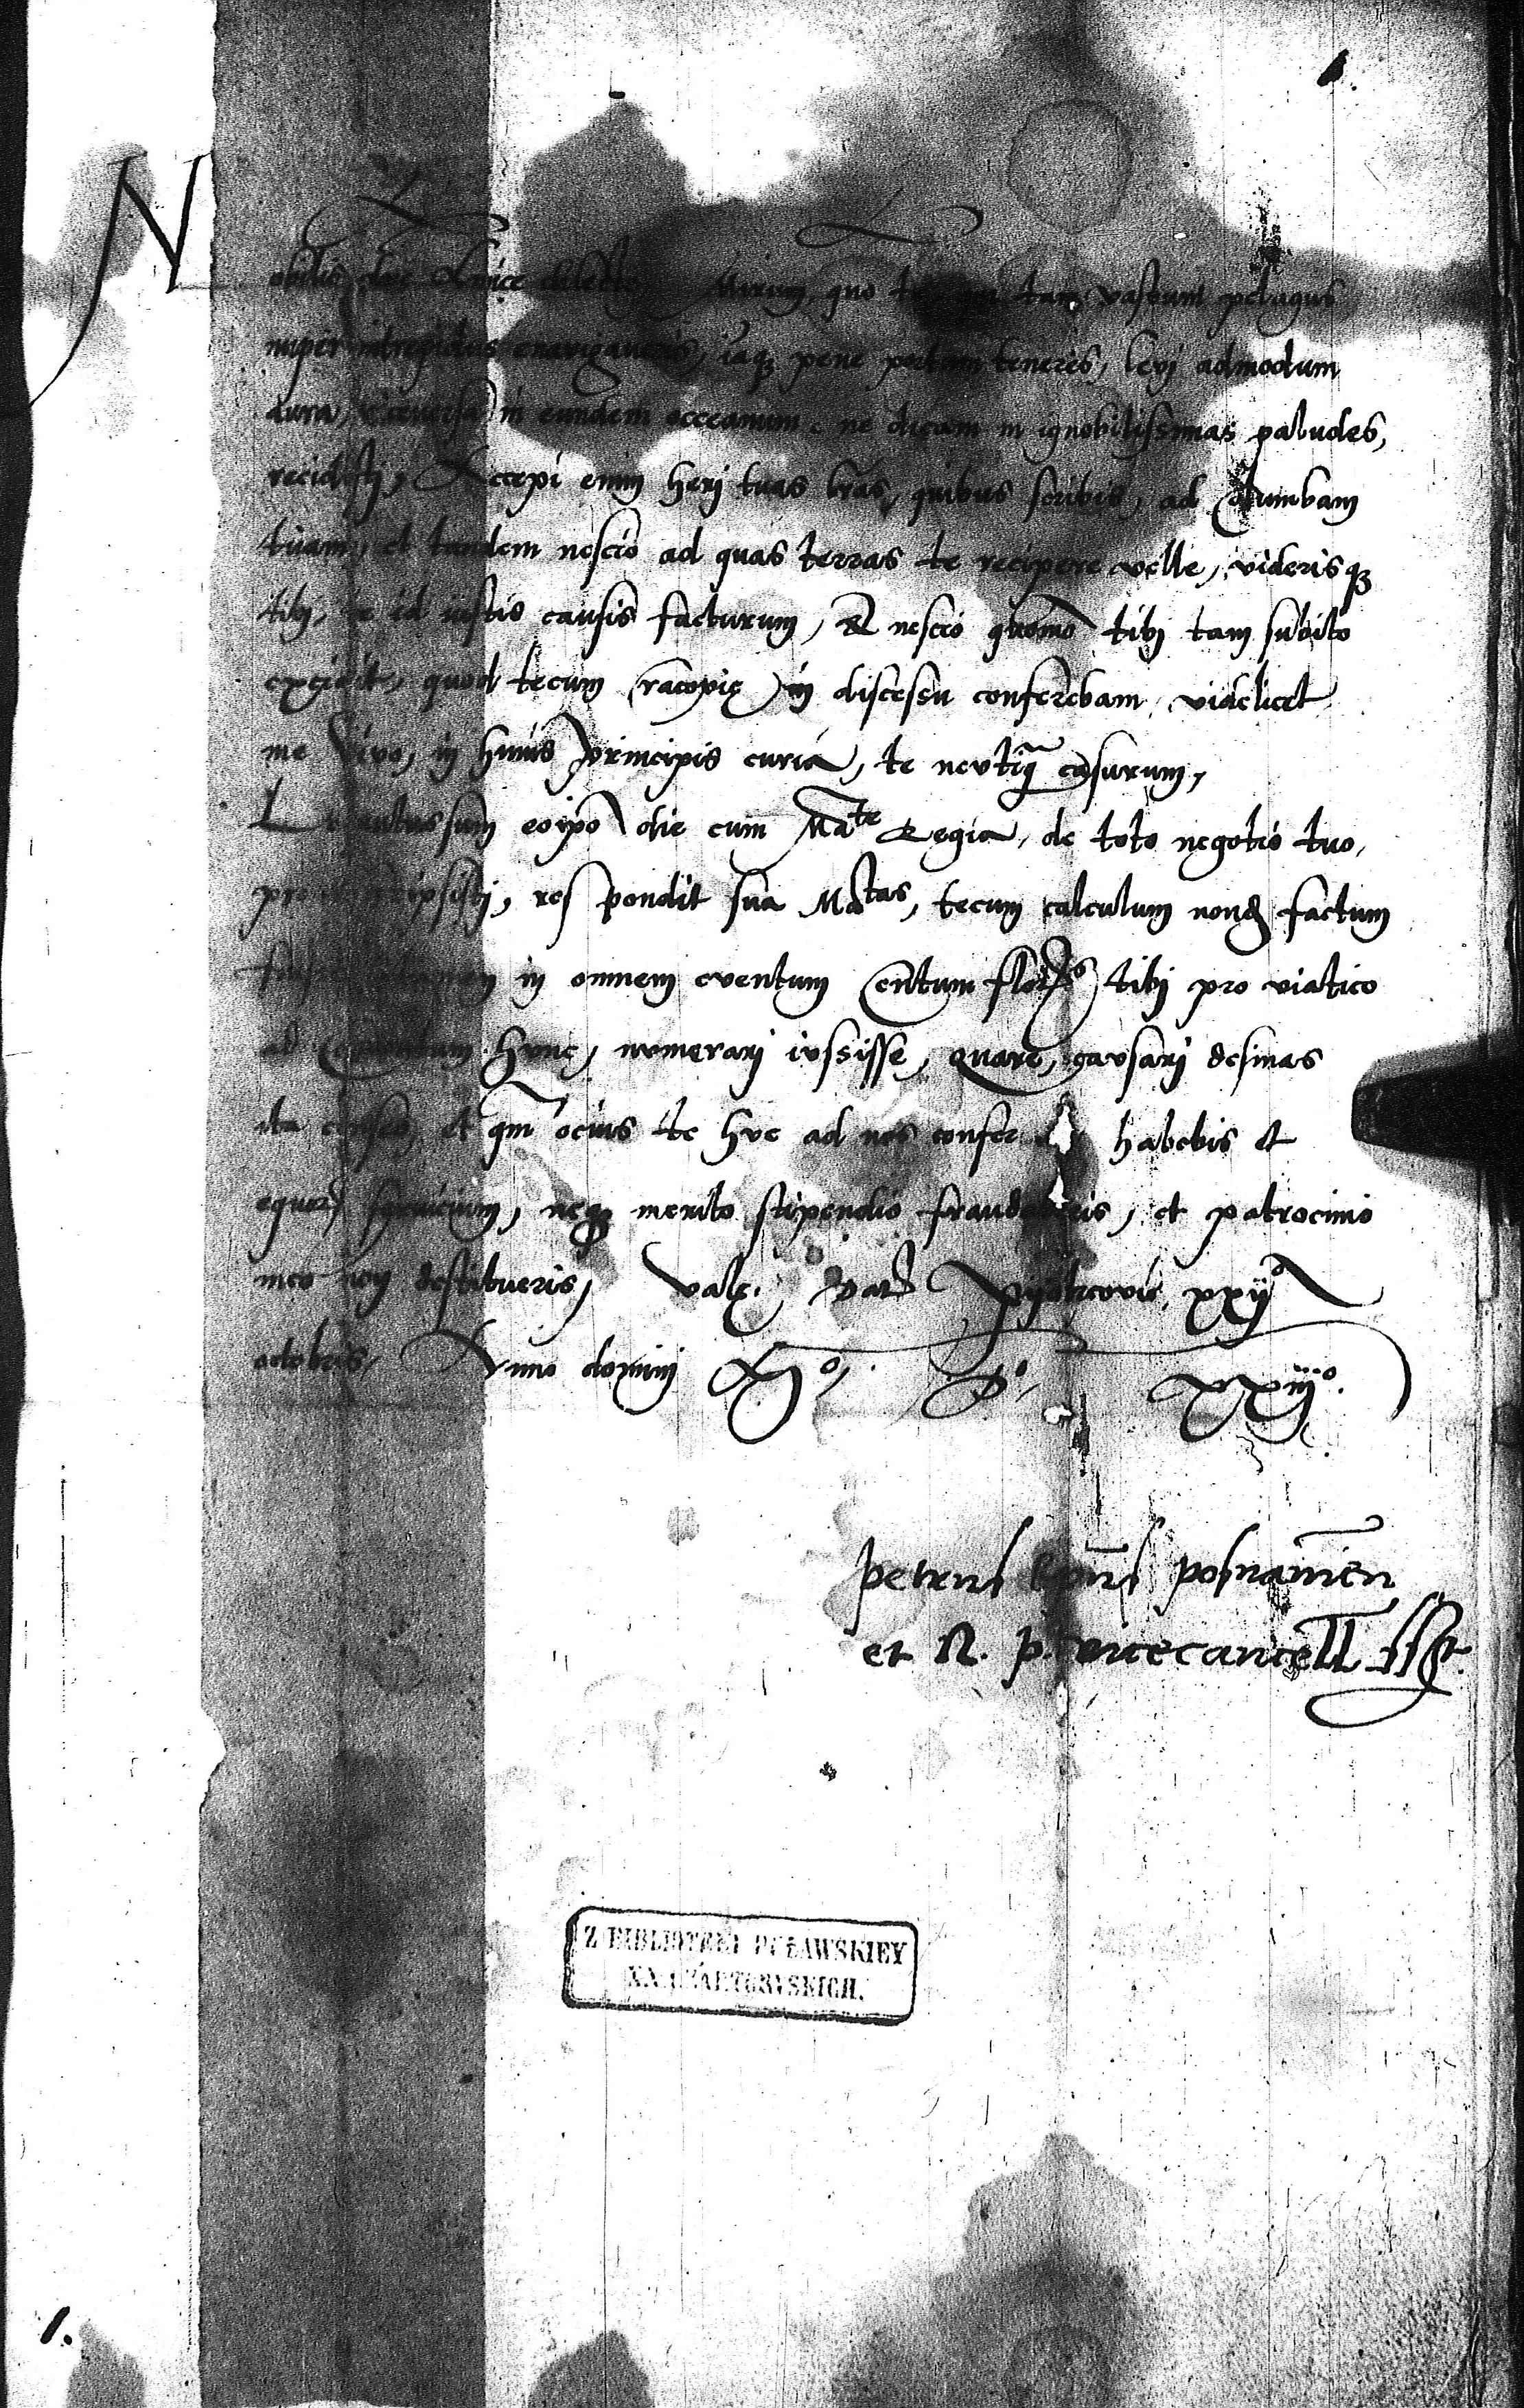 1.
Nobilis d̄ne Amice dilecte Mirum, quo te qui tam vastum pelagus
nuper intrepidus enavigaveris, iāq₃ pene portum teneris, levj admodum
aura, in eundem occeanum, ne dicam in ignobilissimas paludes,
recidistj, Accepi enim herj tuas lr̄as, quibus scribis, ad Columbam
tuam, et tandem nescio ad quas terras te recipere velle, viderisq₃
tibj, te id iustis causis facturum, Et nescio quomō tibj tam subito
excidit, quod tecum Cracovię in discessu conferebam, videlicet
me vivo, in huius principis curia, te neutiq̄ casurum,
Locutus sum eoip̄o die cum Mate Regia, de toto negotio tuo,
pro scripsistj, respondit sua Matas, tecum calculum nond factum
fuisse in omnem eventum Centum flor tibj pro viatico
ad Conventum hunc, numerarj iussisse, quare, causarj desinas
ita censeo, et qm̄ ocius te huc ad nos confer habebis et
equor servicium, neq₃ merito stipendio fraudaberis, et patrocinio
meo non destitueris, Vale, Dat Pyothrcovię, xxijª
octobris, Anno dominj Mº. Dº. XXiijº.
petrus ep̄us posnanien̄
et R. p. vicecancell sspt.
Z BIBLIOTEKI PUŁAWSKIEY
XX CZARTORYSKICH.
1.